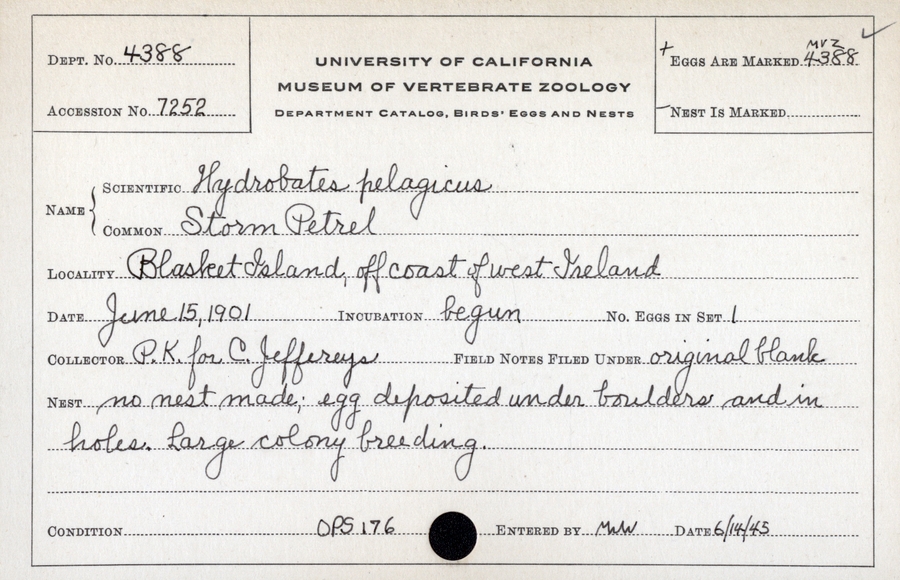 Dept. No. 4388
Accession No. 7252
UNIVERSITY OF CALIFORNIA
MUSEUM OF VERTEBRATE ZOOLOGY
Department Catalog, Birds' Eggs and Nests
+ Eggs Are Marked MVZ 4388 ✓
– Nest Is Marked
Name { Scientific Hydrobates pelagicus
Common Storm Petrel
Locality Blasket Island, off coast of west Ireland
Date June 15, 1901 Incubation begun No. Eggs in Set 1
Collector P.K. for C. Jeffereys Field Notes Filed Under original blank
Nest no nest made; egg deposited under boulders and in
holes. Large colony breeding.
Condition OPS 176 Entered by MWW Date 6/14/45